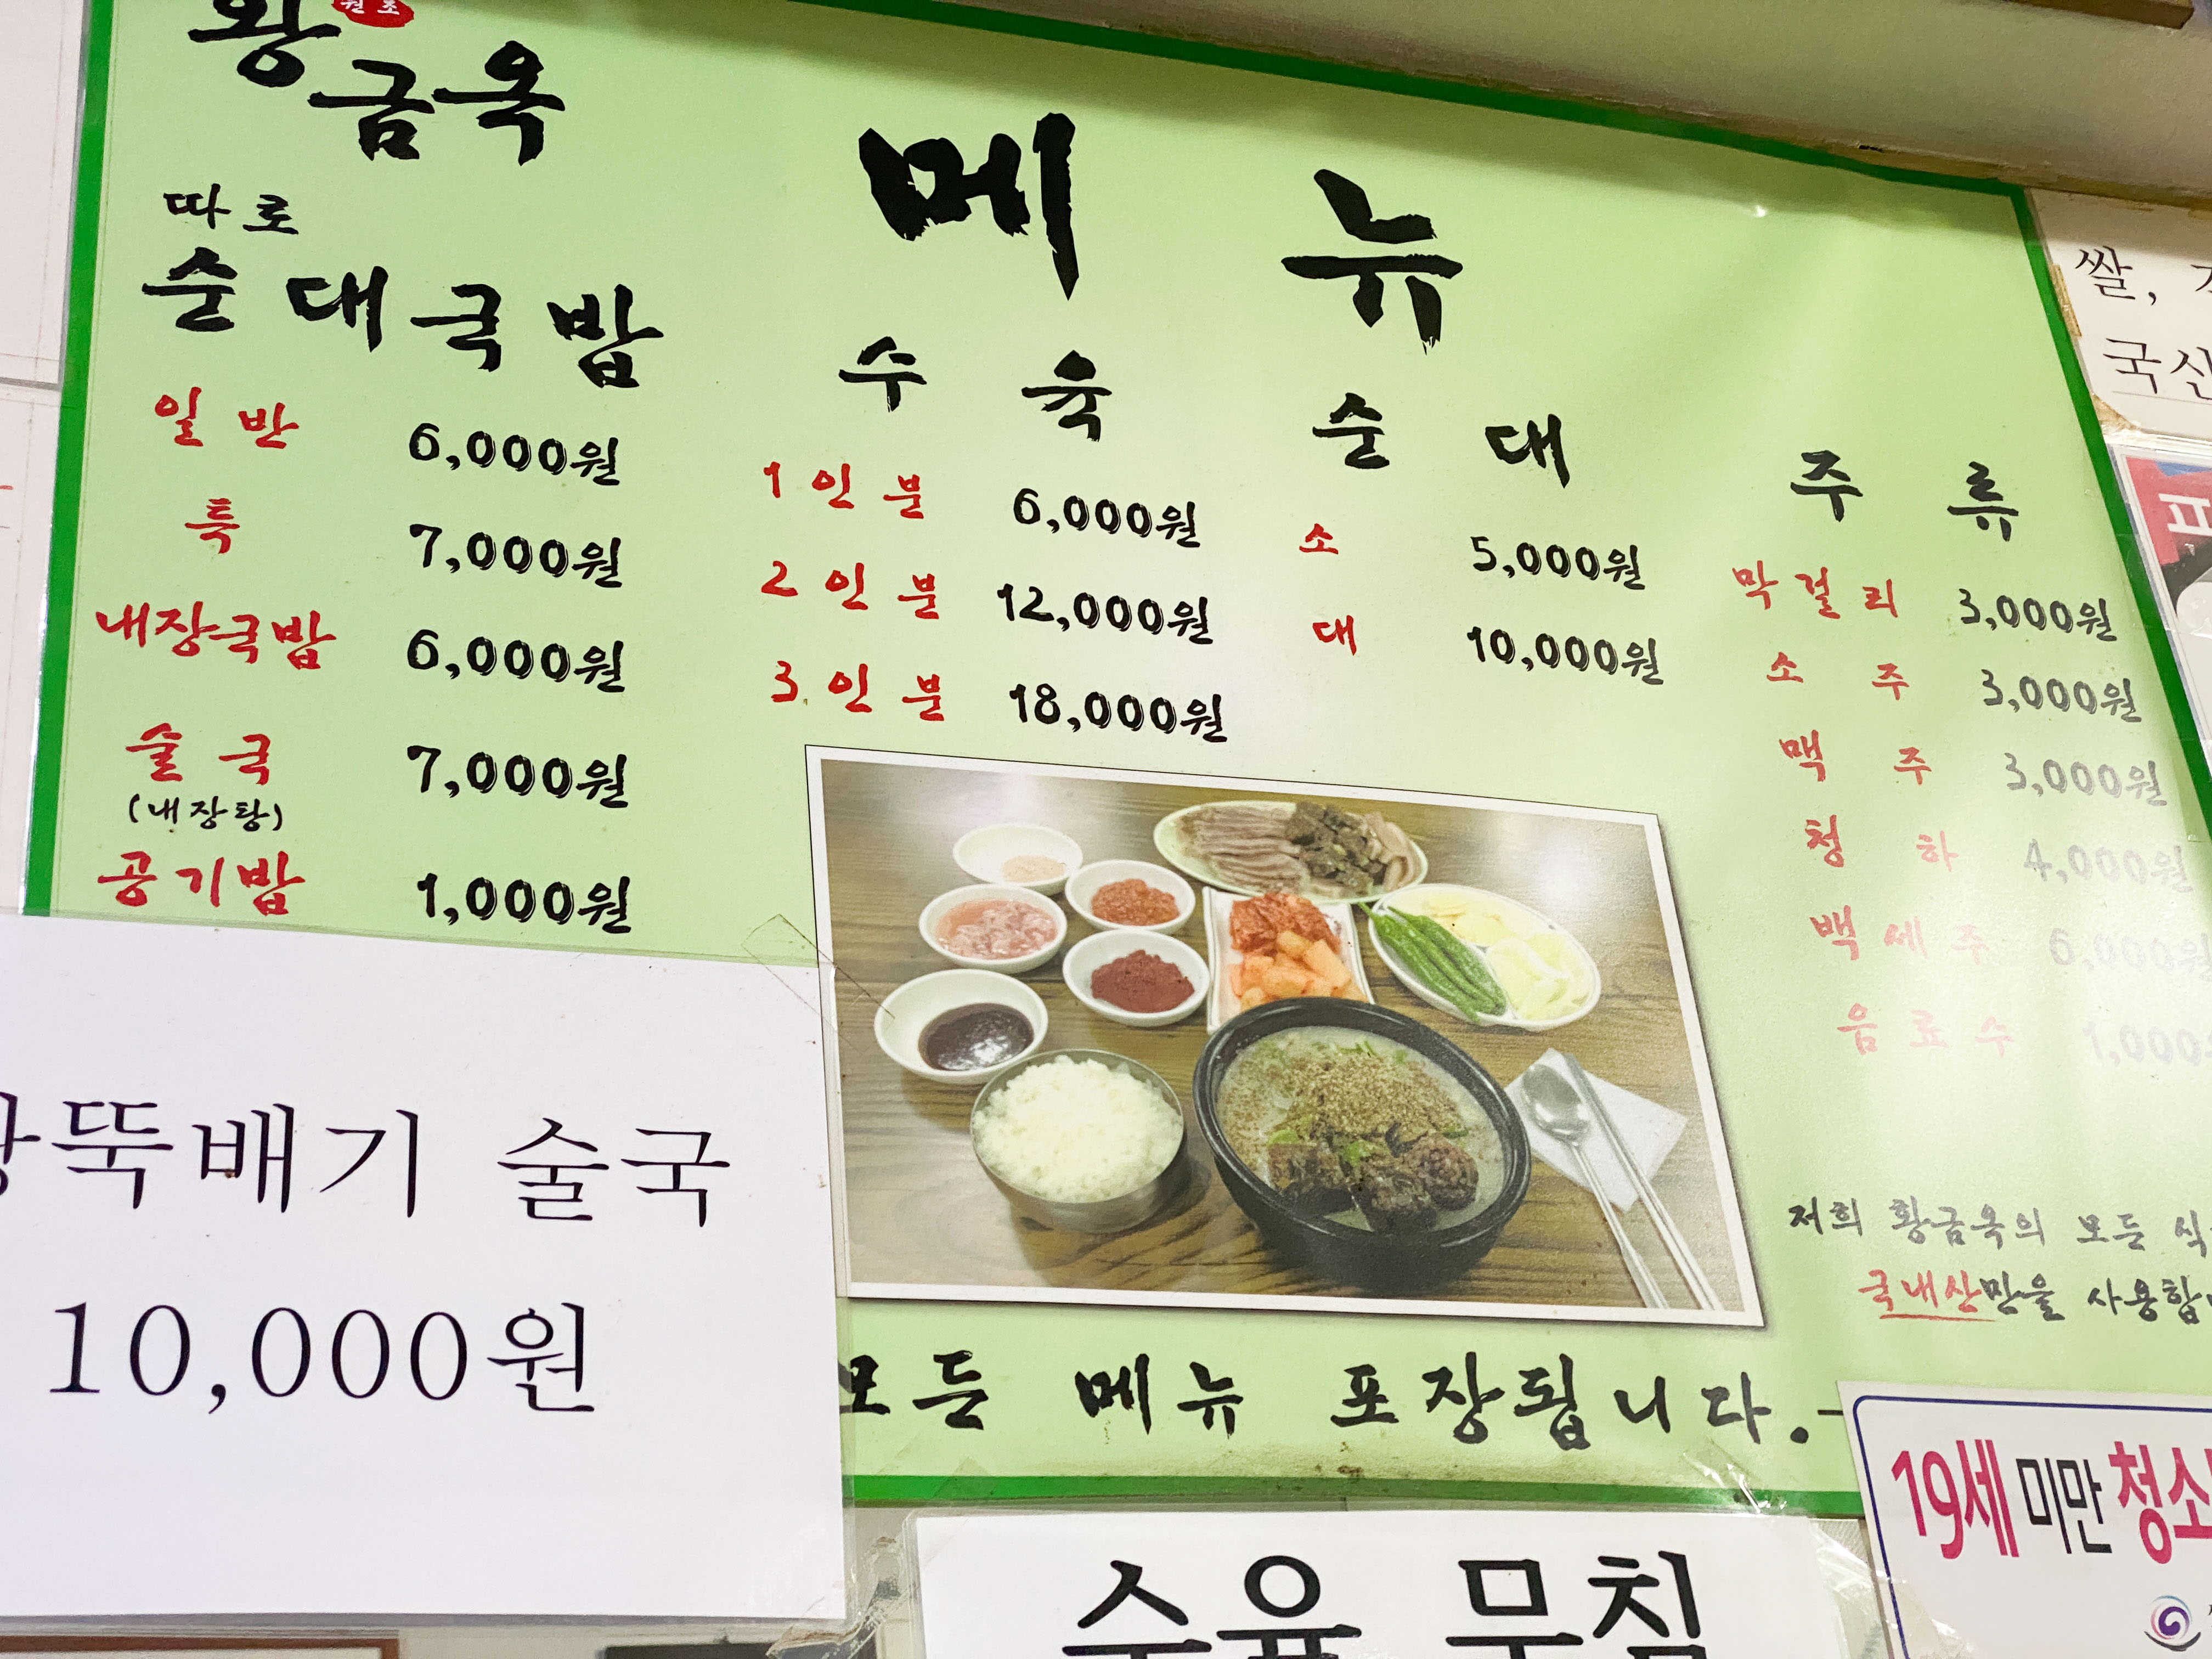 원조
황금옥
메뉴
따로
순대국밥
일반 6,000원
특 7,000원
내장국밥 6,000원
술국 7,000원
(내장탕)
공기밥 1,000원
수육
1인분 6,000원
2인분 12,000원
3인분 18,000원
순대
소 5,000원
대 10,000원
주류
막걸리 3,000원
소주 3,000원
맥주 3,000원
청하 4,000원
백세주 6,000원
음료수 1,000
저희 황금옥의 모든
국내산만을 사용합
모든 메뉴 포장됩니다.
뚝배기 술국
10,000원
수육 무침
쌀,
국산
19세 미만 청소